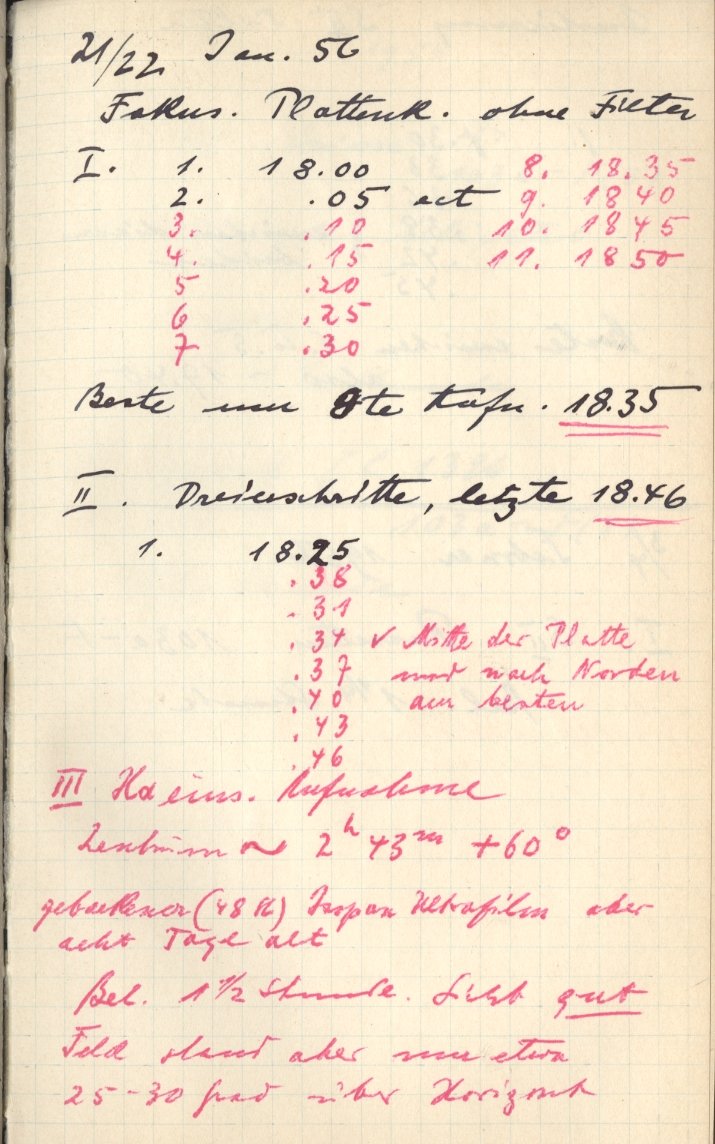 21/22 Jan. 56
Fokus. Plattenk. ohne Filter
I. 1. 18.00 8. 18.35
2. .05 9. 1840
3. .10 10. 1845
4. .15 11. 1850
5 .20
6 .25
7 .30
Beste nur 8te Aufn. 18.35
II. Dreierschritte, letzte 18.46
1. 18.25
.38
.31
.34 ✓ Mitte der Platte
.37 und nach Norden
.40 am besten
.43
.46
III Hα eins. Aufnahme
Zentrum ~ 2h 43m +60°
gebackener (48 St) Isopan Ultrafilm aber
acht Tage alt
Bel. 1 1/2 Stunde. Sieht gut
Feld stand aber nur etwa
25-30 Grad über Horizont